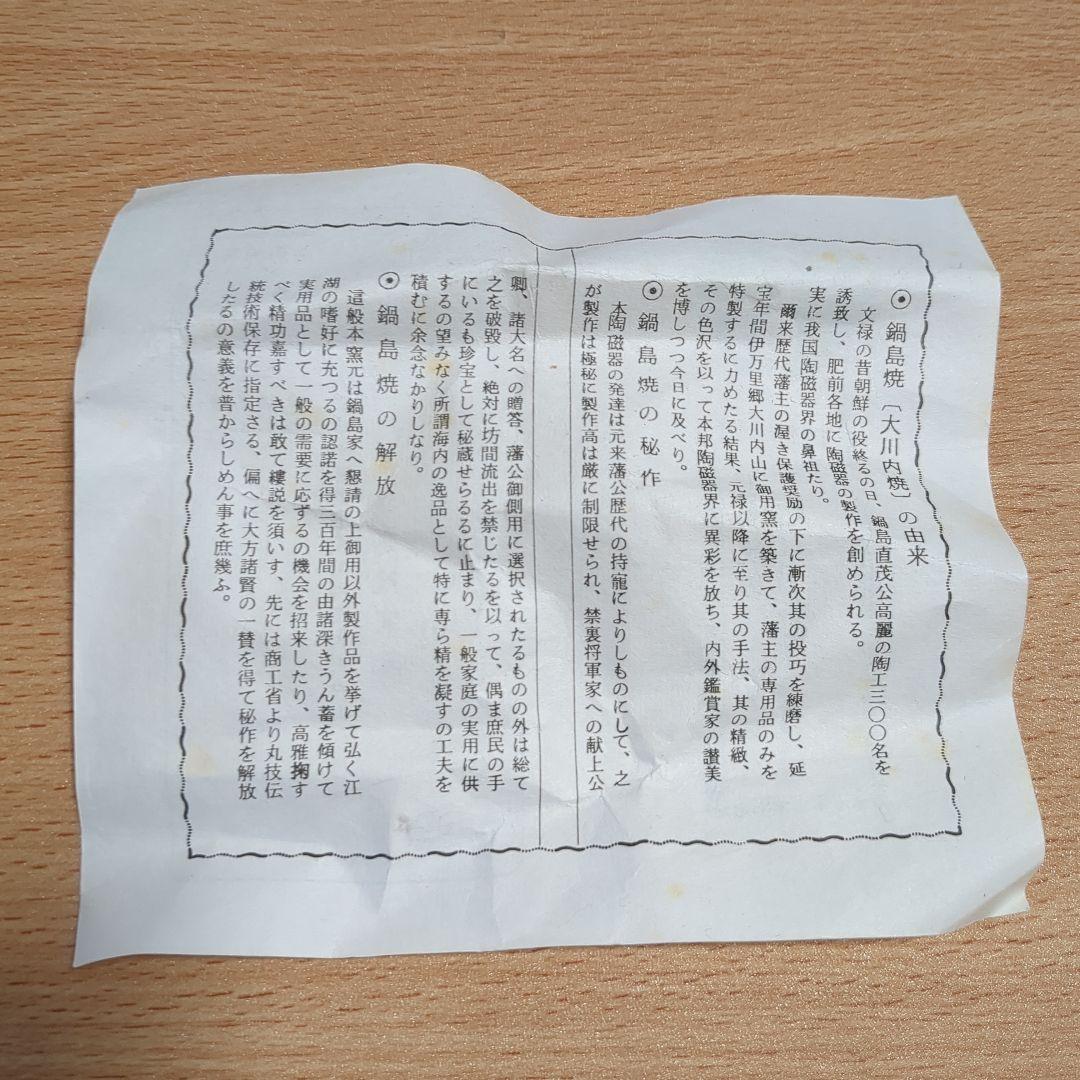 ◉ 鍋島焼〔大川内焼〕の由来
文禄の昔朝鮮の役終るの日、鍋島直茂公高麗の陶工三〇〇名を
誘致し、肥前各地に陶磁器の製作を創められる。
実に我国陶磁器界の鼻祖たり。
爾来歴代藩主の渥き保護奨励の下に漸次其の投巧を練磨し、延
宝年間伊万里郷大川内山に御用窯を築きて、藩主の専用品のみを
特製するに力めたる結果、元禄以降に至り其の手法、其の精緻、
その色沢を以って本邦陶磁器界に異彩を放ち、内外鑑賞家の讃美
を博しつつ今日に及べり。
◉ 鍋島焼の秘作
本陶磁器の発達は元来藩公歴代の持寵によりしものにして、之
が製作は極秘に製作高は厳に制限せられ、禁裏将軍家への献上公
卿、諸大名への贈答、藩公御側用に選択されたるものの外は総て
之を破毀し、絶対に坊間流出を禁じたるを以って、偶ま庶民の手
にいるも珍宝として秘蔵せらるるに止まり、一般家庭の実用に供
するの望みなく所謂海内の逸品として特に専ら精を凝すの工夫を
積むに余念なかりしなり。
◉ 鍋島焼の解放
這般本窯元は鍋島家へ懇請の上御用以外製作品を挙げて弘く江
湖の嗜好に充つるの認諾を得三百年間の由諸深きうん蓄を傾けて
実用品として一般の需要に応ずるの機会を招来したり、高雅掬す
べく精功嘉すべきは敢て縷説を須いす、先には商工省より丸技伝
統技術保存に指定さる、偏へに大方諸賢の一賛を得て秘作を解放
したるの意義を普からしめん事を庶幾ふ。